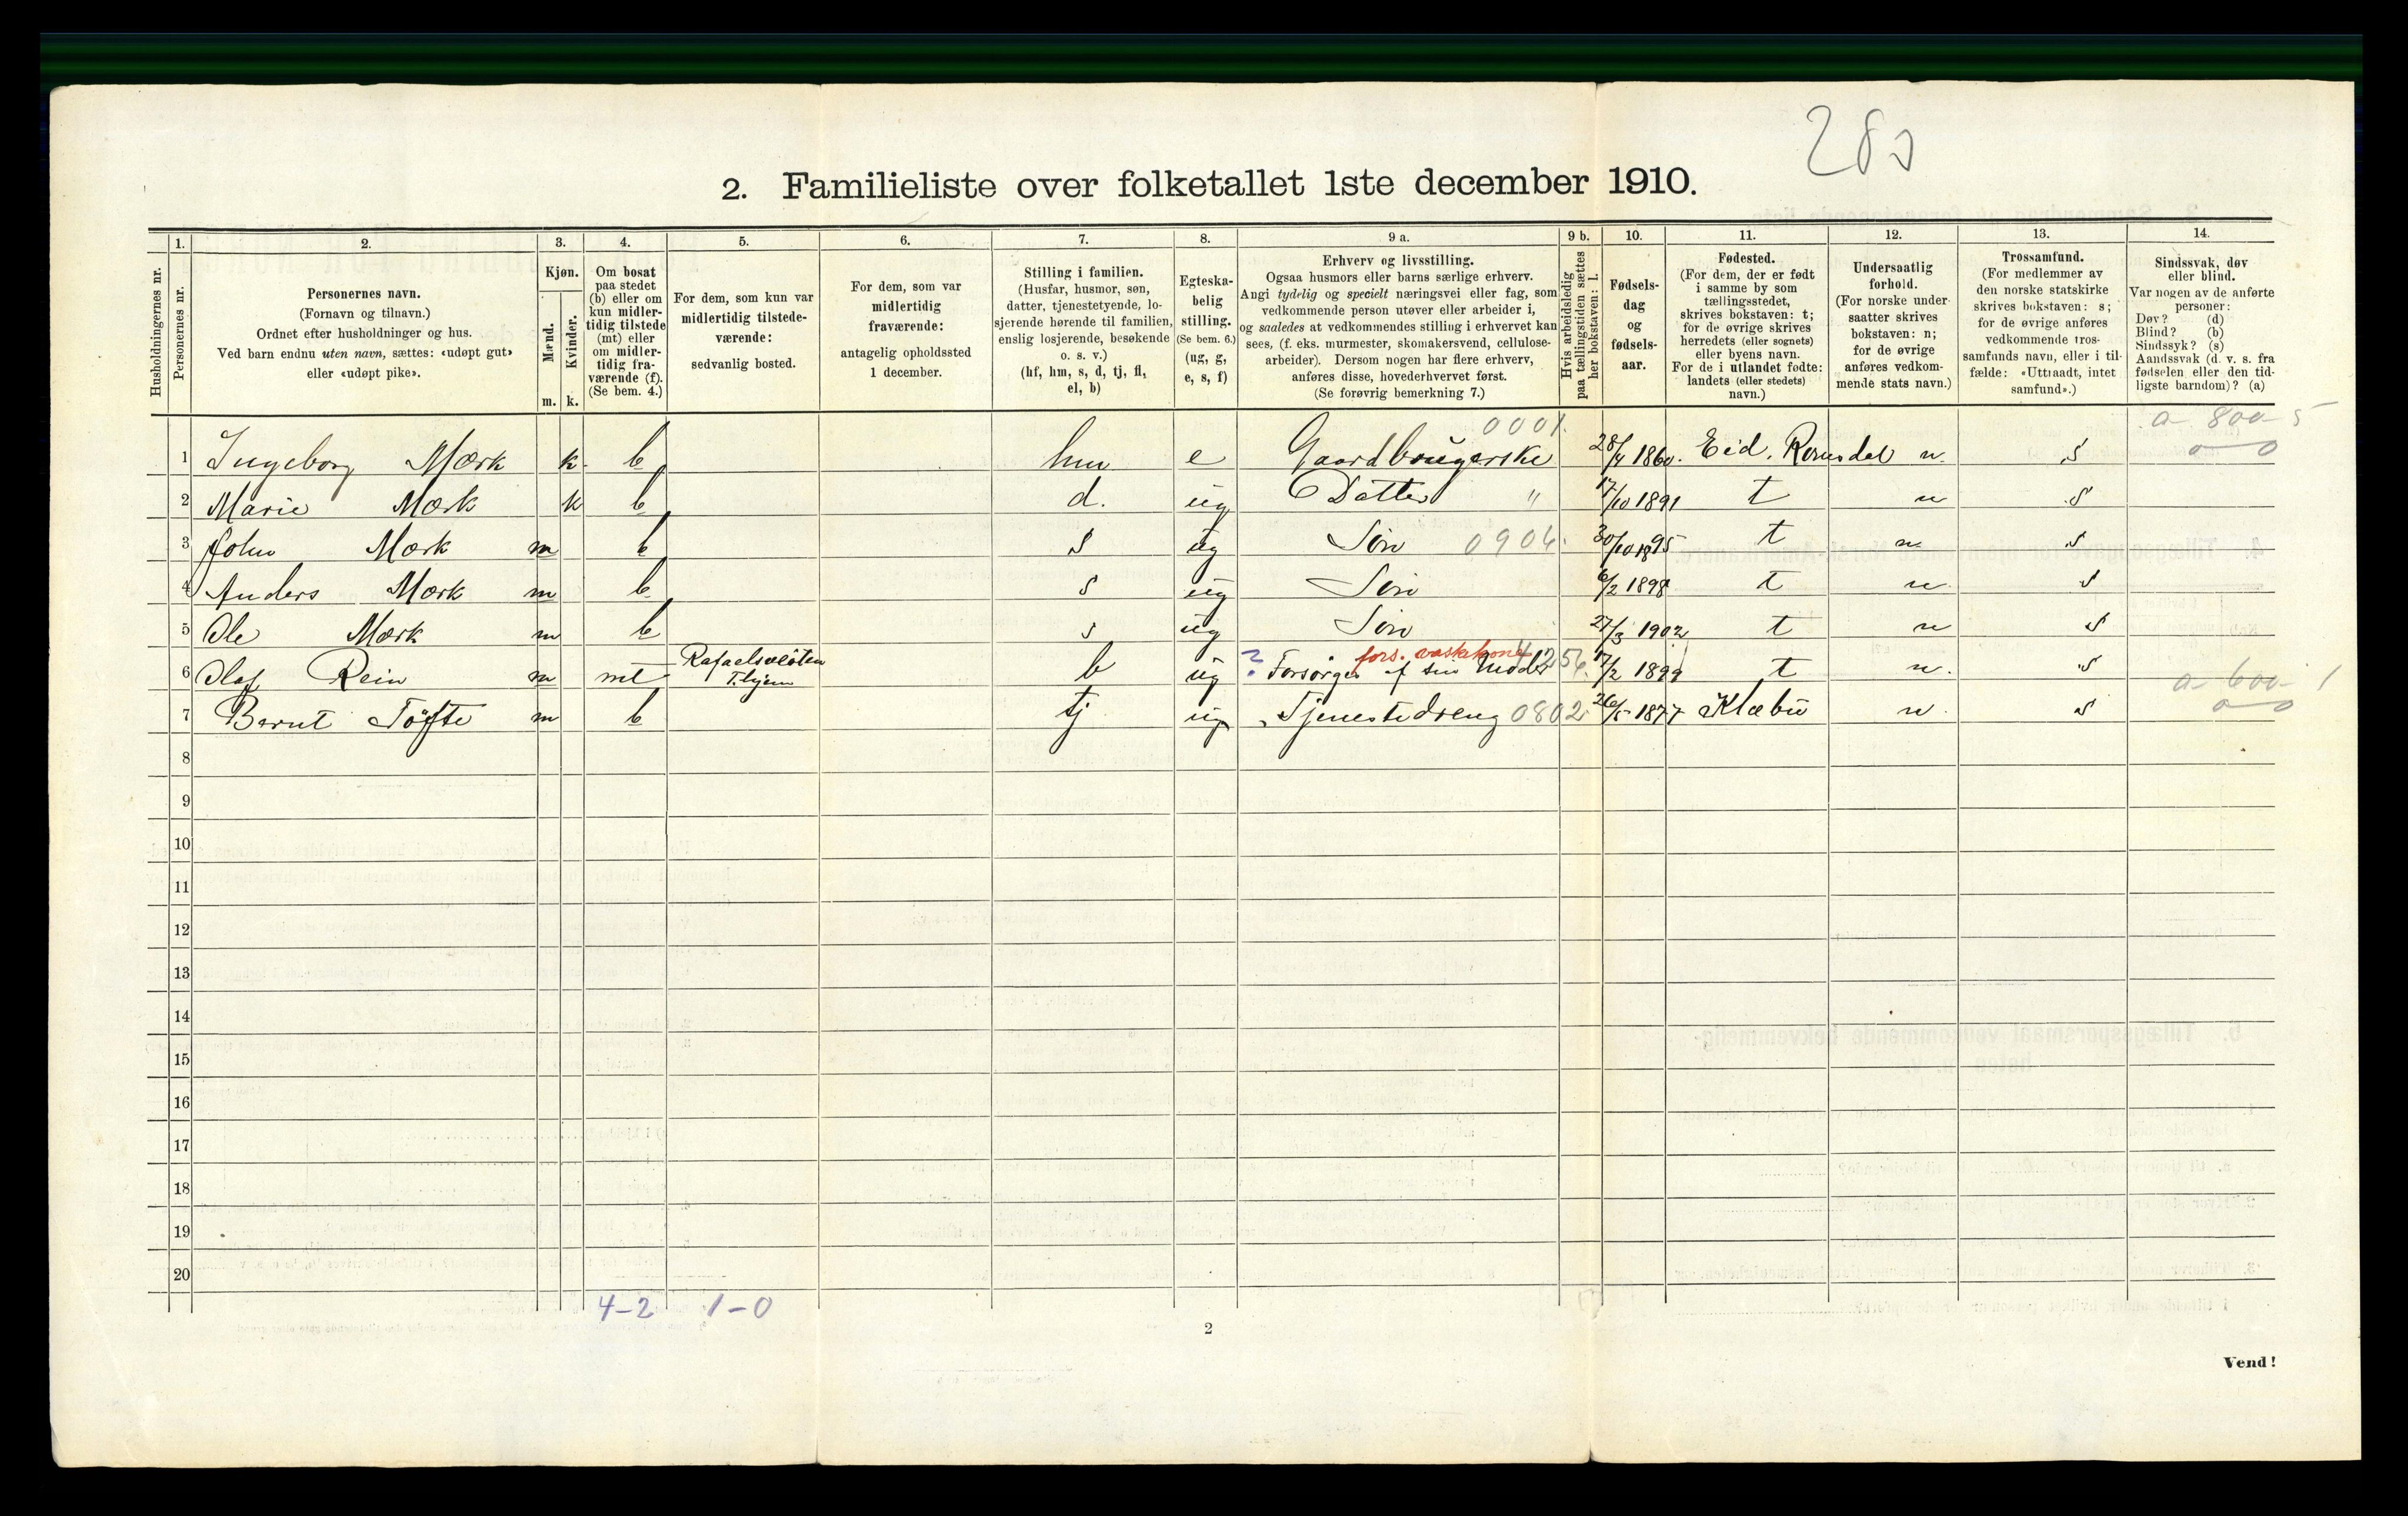 283
2. Familieliste over folketallet 1ste december 1910.
Husholdningernes nr.
1.
Personernes nr.
2.
Personernes navn.
(Fornavn og tilnavn.)
Ordnet efter husholdninger og hus.
Ved barn endnu uten navn, sættes: «udøpt gut»
eller «udøpt pike».
3.
Kjøn.
Mænd.
m.
Kvinder.
k.
4.
Om bosat
paa stedet
(b) eller om
kun midler-
tidig tilstede
(mt) eller
om midler-
tidig fra-
værende (f).
(Se bem. 4.)
5.
For dem, som kun var
midlertidig tilstede-
værende:
sedvanlig bosted.
6.
For dem, som var
midlertidig
fraværende:
antagelig opholdssted
1 december.
7.
Stilling i familien.
(Husfar, husmor, søn,
datter, tjenestetyende, lo-
sjerende hørende til familien,
enslig losjerende, besøkende
o. s. v.)
(hf, hm, s, d, tj, fl,
el, b)
8.
Egteska-
belig
stilling.
(Se bem. 6.)
(ug, g,
e, s, f)
9 a.
Erhverv og livsstilling.
Ogsaa husmors eller barns særlige erhverv.
Angi tydelig og specielt næringsvei eller fag, som
vedkommende person utøver eller arbeider i,
og saaledes at vedkommendes stilling i erhvervet kan
sees, (f. eks. murmester, skomakersvend, cellulose-
arbeider). Dersom nogen har flere erhverv,
anføres disse, hovederhvervet først.
(Se forøvrig bemerkning 7.)
9 b.
Hvis arbeidsledig
paa tællingstiden sættes
her bokstaven: l.
10.
Fødsels-
dag
og
fødsels-
aar.
11.
Fødested.
(For dem, der er født
i samme by som
tællingsstedet,
skrives bokstaven: t;
for de øvrige skrives
herredets (eller sognets)
eller byens navn.
For de i utlandet fødte:
landets (eller stedets)
navn.)
12.
Undersaatlig
forhold.
(For norske under-
saatter skrives
bokstaven: n;
for de øvrige
anføres vedkom-
mende stats navn.)
13.
Trossamfund.
(For medlemmer av
den norske statskirke
skrives bokstaven: s;
for de øvrige anføres
vedkommende tros-
samfunds navn, eller i til-
fælde: «Uttraadt, intet
samfund».)
14.
Sindssvak, døv
eller blind.
Var nogen av de anførte
personer:
Døv? (d)
Blind? (b)
Sindssyk? (s)
Aandssvak (d. v. s. fra
fødselen eller den tid-
ligste barndom)? (a)
0001. a- 800- 5
1 Ingeborg Mærk k. b hm e Gaardbrugerske 28/4 1860. Eid. Romsdal n. s 0—0
2 Marie Mærk k b d. ug Datter " 17/10 1891 t n s
3 John Mærk m b s ug Søn 0904. 30/10 1895 t n. s
4 Anders Mærk m b s ug Søn 6/2 1898 t n. s
5 Ole Mærk m b s ug Søn 27/3 1902 t n s
fors. vaskekone
6 Olaf Rein m mt Thjem b ug ? Forsørges af sin Moder 17/2 1899 t n. s a- 600- 1
7 Bernt Töfte m b tj ug Tjenestedreng 0802 26/5 1877 Klæbü n. s 0—0
8
9
10
11
12
13
14
15
16
17
18
19
20
4-2 1-0
2
Vend!